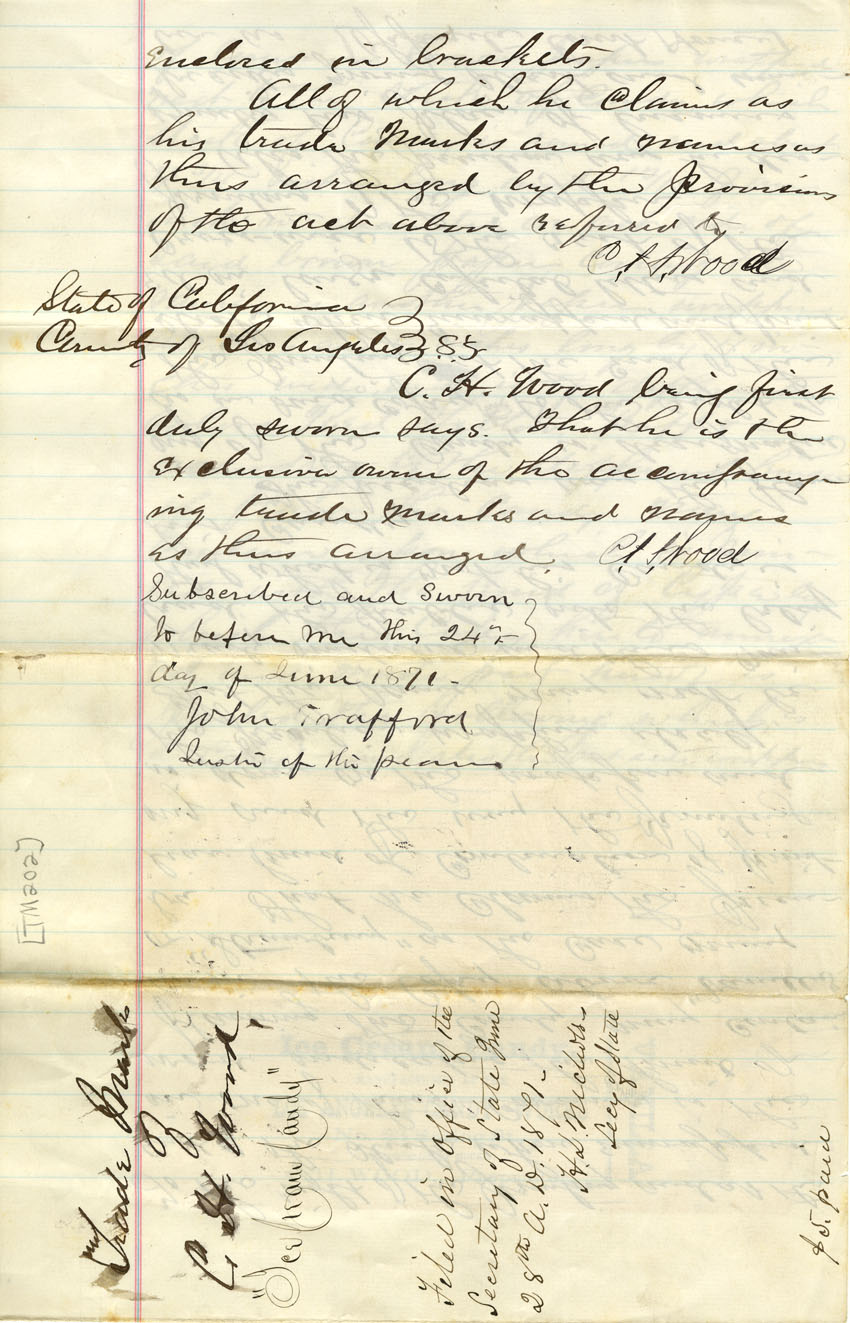 enclosed in brackets.
All of which he claims as
his trade Marks and names as
thus arranged by the provisions
of the act above referred to
C. H. Wood
State of California
County of Los Angeles } SS
C. H. Wood being first
duly sworn says. That he is the
exclusive owner of the accompany-
ing trade marks and names
as thus arranged. C. H. Wood
Subscribed and Sworn
to before me this 24th
day of June 1871-
John Trafford
Justice of the peace
[TM202]
Trade Mark
C. H. Wood
"Ice Cream Candy"
Filed in Office of the
Secretary of State June
28th A.D. 1871-
H. L. Nichols-
Secy of State
$5. paid